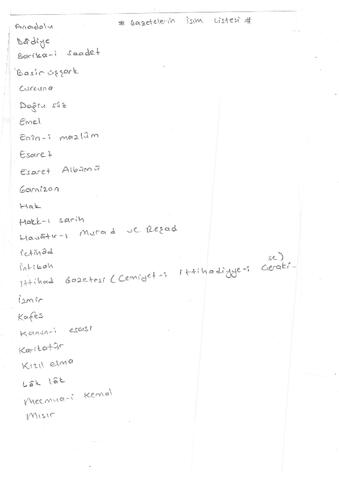 # Gazetelerin isim Listesi #
Anadolu
Bâdiye
Barika-i saadet
Basir üşşark
Curcuna
Doğru söz
Emel
Enin-i mazlûm
Esaret
Esaret Albümü
Garnizon
Hak
Hakk-ı sarih
Murad ve Reşad
ictihâd
intibah
ittihad Gazetesi (Cemiyet-i ittihadiyye-i
izmir
Kafes
Kanun-i esasi
Karikatür
Kızıl elma
Lâk lâk
Mecmua-i Kemal
Mısır